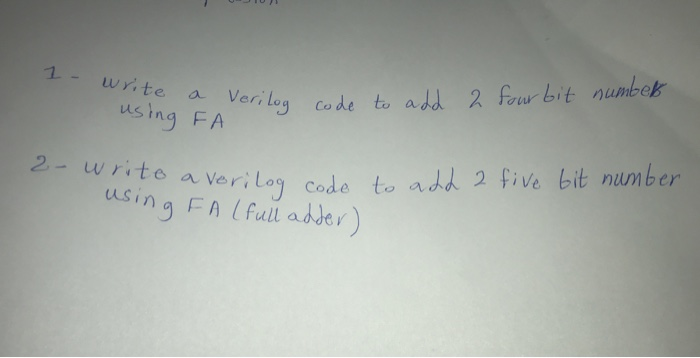 1- write a Verilog code to add 2 four bit numbers
using FA
2- write a verilog code to add 2 five bit number
using FA (full adder)